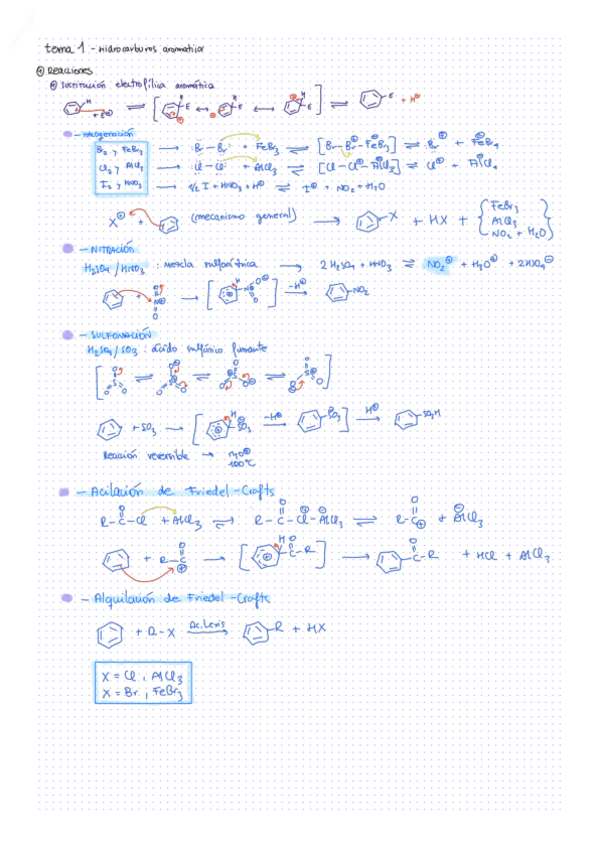 tema 1 - Hidrocarburos aromáticos
Reacciones
Sustitución electrofílica aromática
H + E⊕ ⇌ [ H E ⊕ ↔ H E ⊕ ↔ ⊕ H E ] ⇌ E + H⊕
- HALOGENACIÓN
Br₂ y FeBr₃ → Br-Br + FeBr₃ ⇌ [Br-Br⊕-FeBr₃⊖] ⇌ Br⊕ + FeBr₄⊖
Cl₂ y AlCl₃ → Cl-Cl + AlCl₃ ⇌ [Cl-Cl⊕-AlCl₃⊖] ⇌ Cl⊕ + AlCl₄⊖
I₂ y HNO₃ → 1/2 I + HNO₃ + H⊕ ⇌ I⊕ + NO₂ + H₂O
X⊕ + (mecanismo general) → X + HX + { FeBr₃
AlCl₃
NO₂ + H₂O }
- NITRACIÓN
H₂SO₄/HNO₃ : mezcla sulfonítrica → 2 H₂SO₄ + HNO₃ ⇌ NO₂⊕ + H₃O⊕ + 2HSO₄⊖
+ O N⊕ O → [ H N⊕ O O⊖ ] -H⊕→ NO₂
- SULFONACIÓN
H₂SO₄/SO₃ : ácido sulfúrico fumante
+ SO₃ → [ H SO₃⊖ -H⊕→ SO₃⊖ ] H⊕→ SO₃H
Reacción reversible → H₃O⊕
100°C
- Acilación de Friedel-Crafts
R-C(=O)-Cl + AlCl₃ ⇌ R-C(=O)-Cl⊕-AlCl₃⊖ ⇌ R-C(=O)⊕ + AlCl₃⊖
+ R-C(=O)⊕ → [ H C(=O)-R ⊕ ] → C(=O)-R + HCl + AlCl₃
- Alquilación de Friedel-Crafts
+ R-X Ac.Lewis→ R + HX
X = Cl , AlCl₃
X = Br , FeBr₃